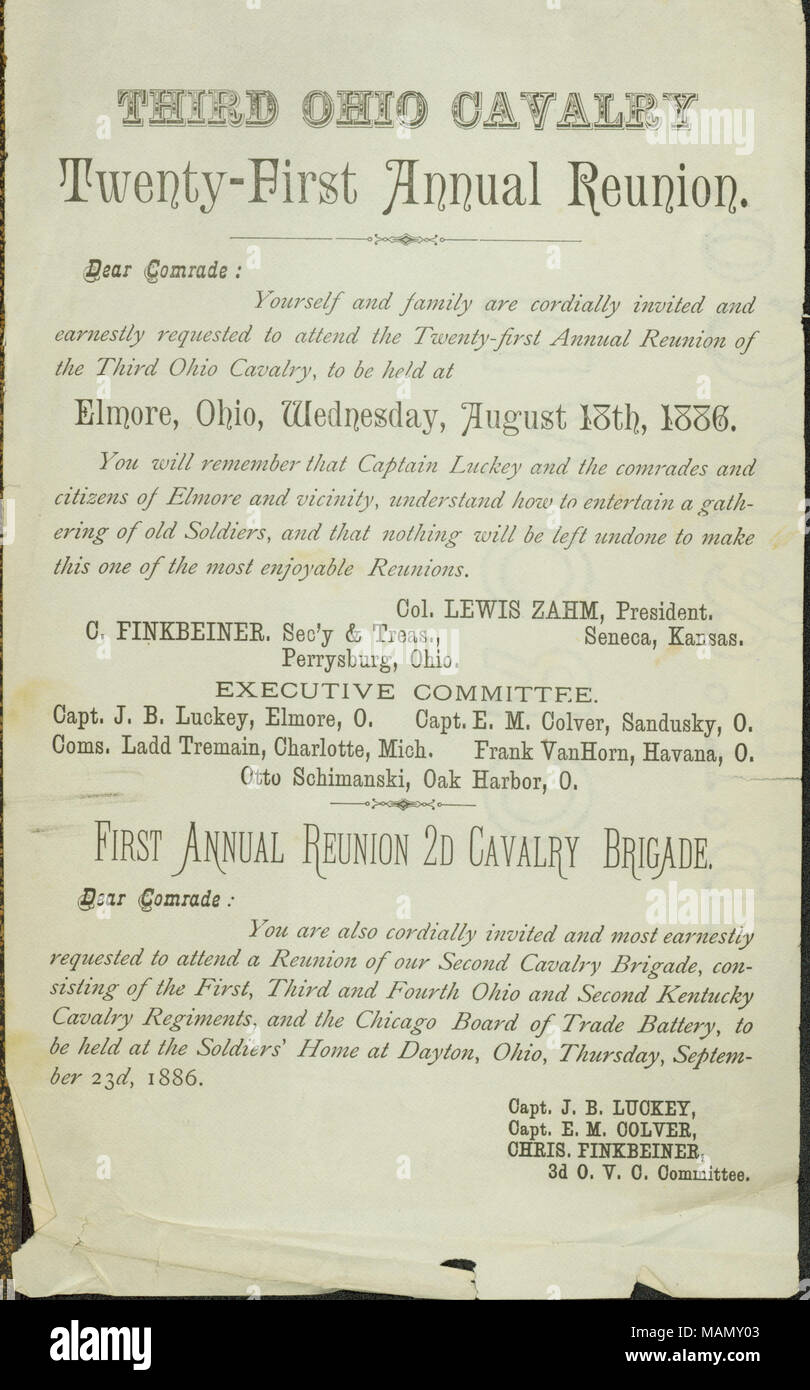 THIRD OHIO CAVALRY
Twenty-First Annual Reunion.
Dear Comrade :
Yourself and family are cordially invited and
earnestly requested to attend the Twenty-first Annual Reunion of
the Third Ohio Cavalry, to be held at
Elmore, Ohio, Wednesday, August 18th, 1886.
You will remember that Captain Luckey and the comrades and
citizens of Elmore and vicinity, understand how to entertain a gath-
ering of old Soldiers, and that nothing will be left undone to make
this one of the most enjoyable Reunions.
Col. LEWIS ZAHM, President.
C. FINKBEINER. Sec'y & Treas., Seneca, Kansas.
Perrysburg, Ohio.
EXECUTIVE COMMITTEE.
Capt. J. B. Luckey, Elmore, O. Capt. E. M. Colver, Sandusky, O.
Coms. Ladd Tremain, Charlotte, Mich. Frank VanHorn, Havana, O.
Otto Schimanski, Oak Harbor, O.
FIRST ANNUAL REUNION 2D CAVALRY BRIGADE.
Dear Comrade :
You are also cordially invited and most earnestly
requested to attend a Reunion of our Second Cavalry Brigade, con-
sisting of the First, Third and Fourth Ohio and Second Kentucky
Cavalry Regiments, and the Chicago Board of Trade Battery, to
be held at the Soldiers' Home at Dayton, Ohio, Thursday, Septem-
ber 23d, 1886.
Capt. J. B. LUCKEY,
Capt. E. M. COLVER,
CHRIS. FINKBEINER,
3d O. V. C. Committee.
alamy
alamy
alamy
a alamy stock photo
MAMY03
www.alamy.com